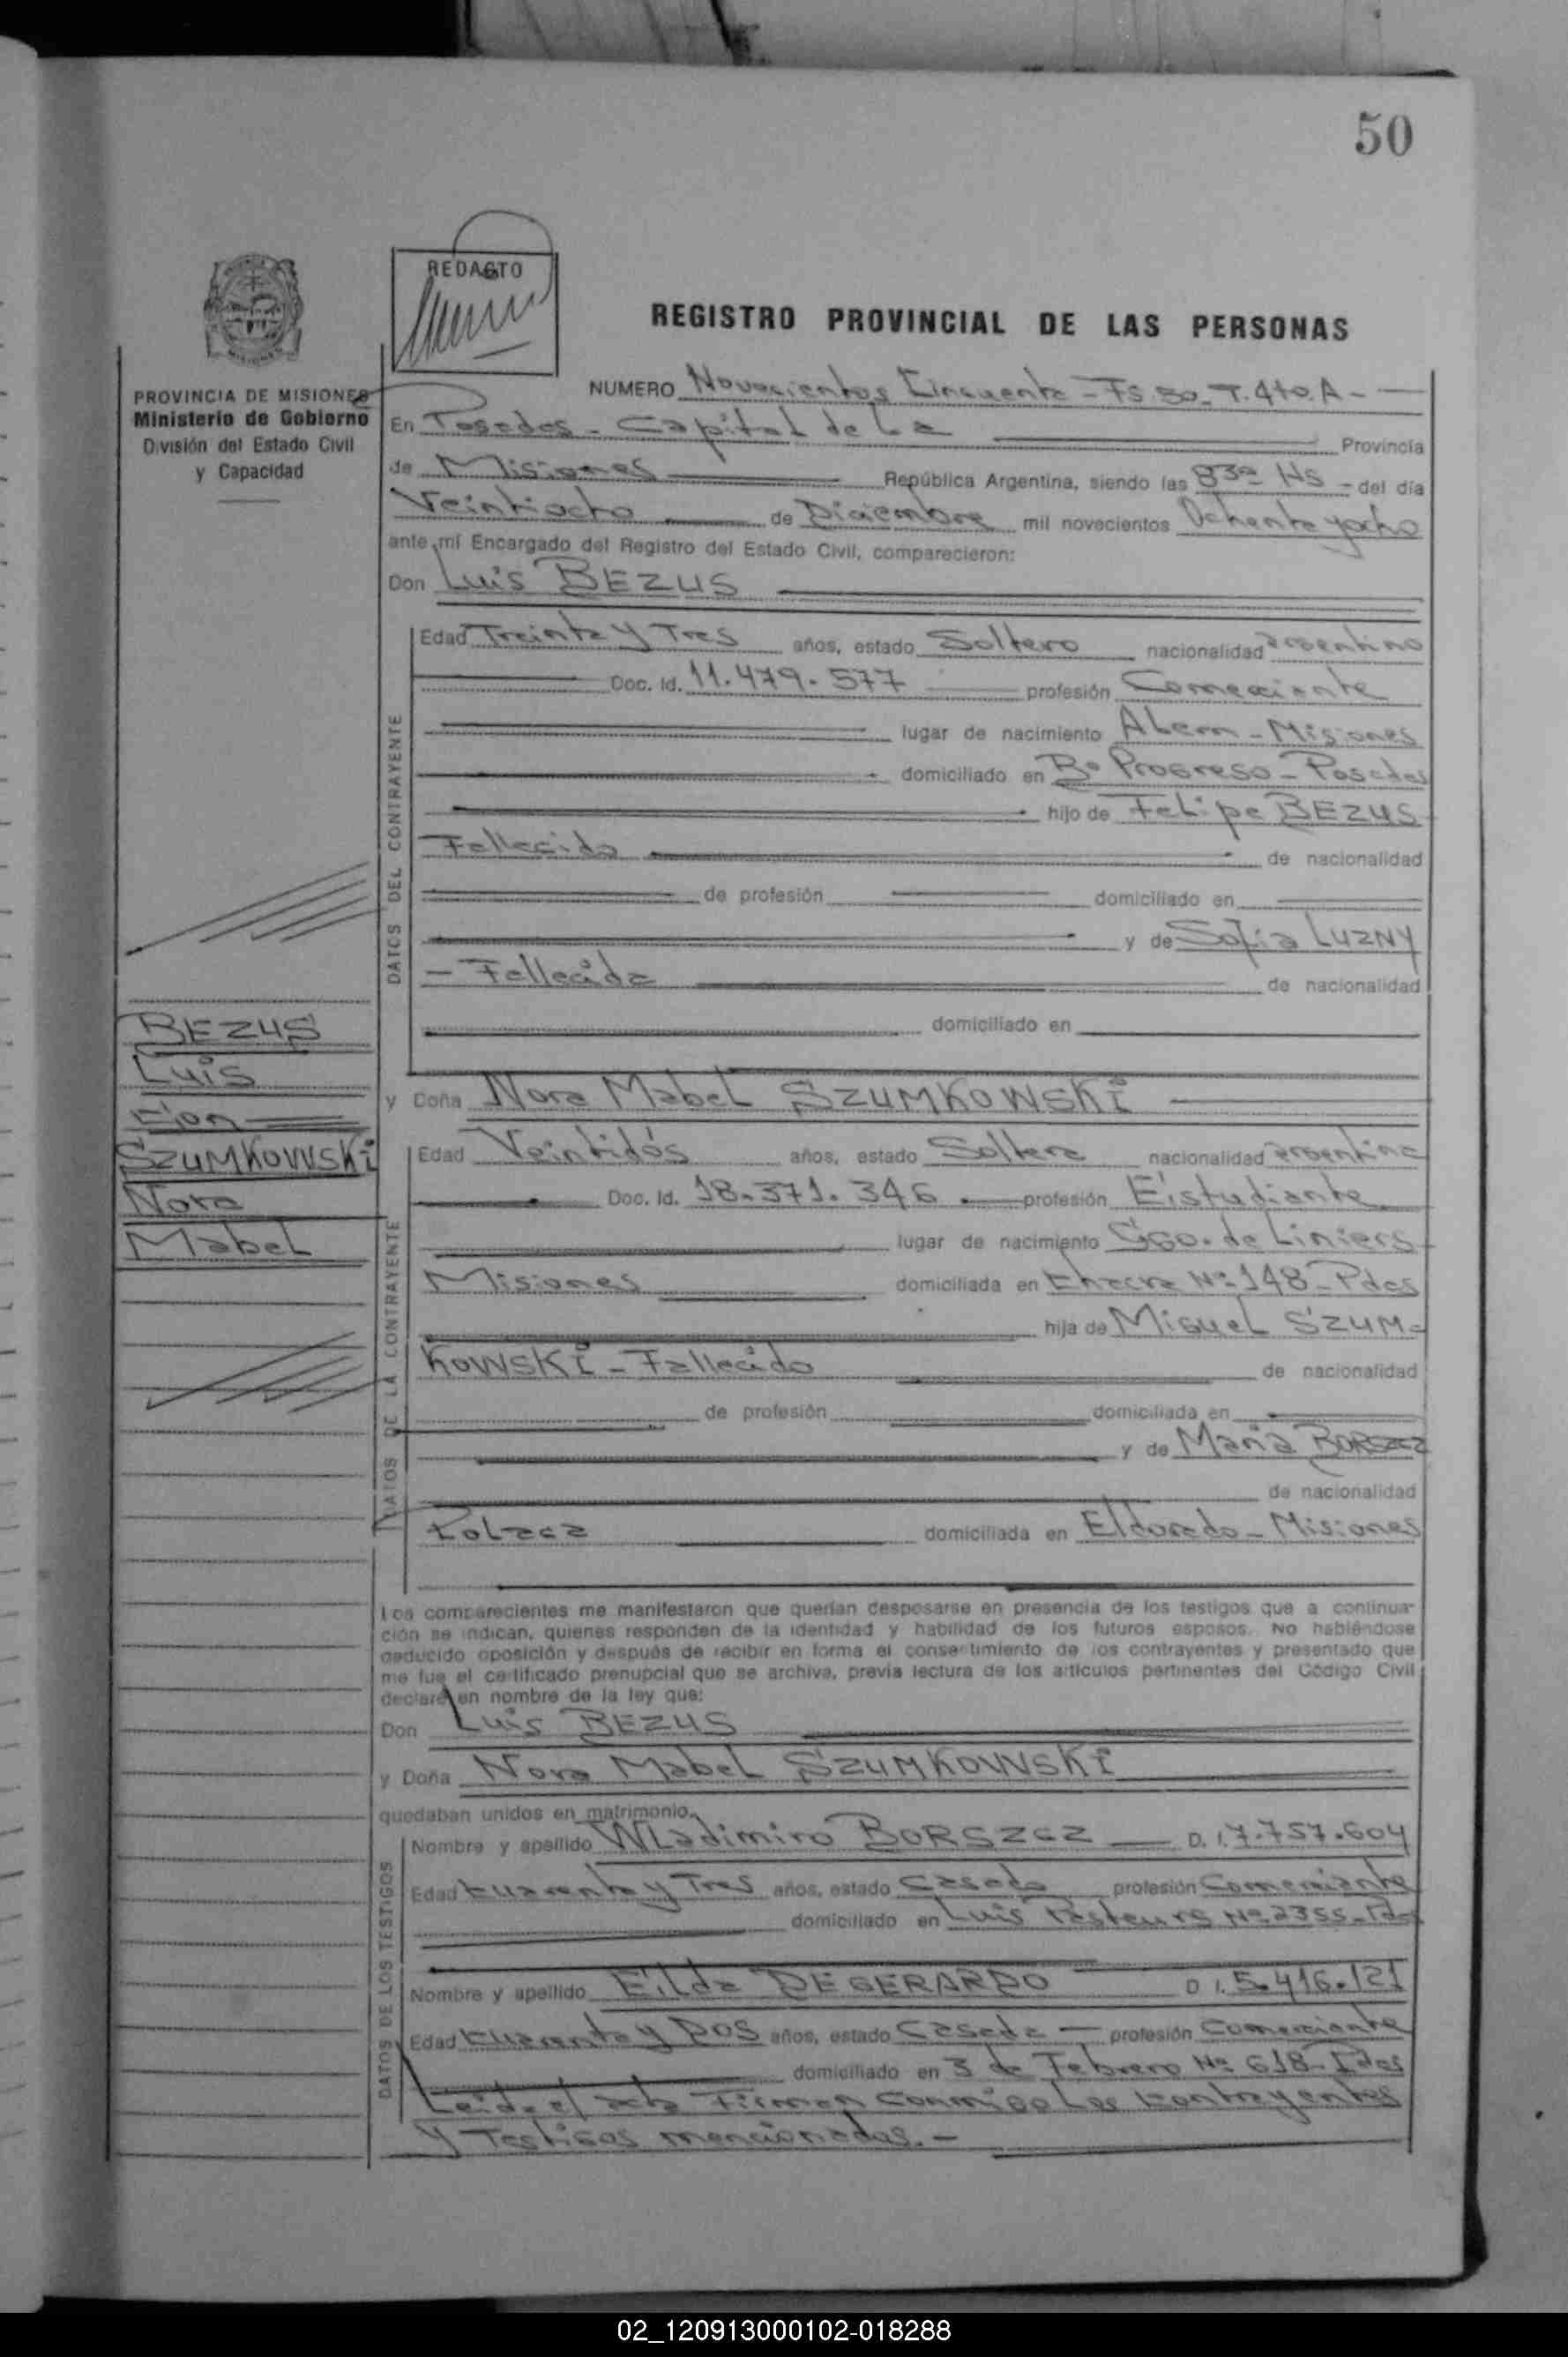 50
REDACTO
REGISTRO PROVINCIAL DE LAS PERSONAS
PROVINCIA DE MISIONES
Ministerio de Gobierno
División del Estado Civil
y Capacidad
NUMERO Novecientos Cincuenta - Fs. 50 - T. 4to. A -
En Posadas - Capital de La Provincia
de Misiones República Argentina, siendo las 830 Hs - del día
Veintiocho de Diciembre mil novecientos Ochenta y ocho
ante mí Encargado del Registro del Estado Civil, comparecieron:
Don Luis BEZUS
DATOS DEL CONTRAYENTE
Edad Treinta y Tres años, estado Soltero nacionalidad argentino
Doc. Id. 11.479.577 profesión Comerciante
lugar de nacimiento Alem - Misiones
domiciliado en Bº Progreso - Posadas
hijo de Felipe BEZUS
Fallecido de nacionalidad
de profesión domiciliado en
y de Sofia LUZNY
- Fallecida de nacionalidad
domiciliado en
BEZUS
Luis
Con
SZUMKOWSKI
Nora
Mabel
y Doña Nora Mabel SZUMKOWSKI
DATOS DE LA CONTRAYENTE
Edad Veintidós años, estado Soltera nacionalidad argentina
Doc. Id. 18.371.346 profesión Estudiante
lugar de nacimiento Sgo. de Liniers
Misiones domiciliada en Nº 148 - Pdas
hija de Miguel SZUM-
KOWSKI - Fallecido de nacionalidad
de profesión domiciliada en
y de Maria BORSZCZ
de nacionalidad
Polaca domiciliada en Eldorado - Misiones
Los comparecientes me manifestaron que querían desposarse en presencia de los testigos que a continua-
ción se indican, quienes responden de la identidad y habilidad de los futuros esposos. No habiéndose
deducido oposición y después de recibir en forma el consentimiento de los contrayentes y presentado que
me fue el certificado prenupcial que se archiva, previa lectura de los artículos pertinentes del Código Civil
declaré en nombre de la ley que:
Don Luis BEZUS
y Doña Nora Mabel SZUMKOWSKI
quedaban unidos en matrimonio.
DATOS DE LOS TESTIGOS
Nombre y apellido Wladimiro BORSZCZ D. I. 7.757.604
Edad Cuarenta y Tres años, estado Casado profesión Comerciante
domiciliado en Luis Pasteur Nº 2355 - Pdas
Nombre y apellido Eilda DEGERARDO D I. 5.416.121
Edad Cuarenta y Dos años, estado Casada - profesión Comerciante
domiciliado en 3 de Febrero Nº 618 - Pdas
Leida el acta Firman conmigo Los Contrayentes
y Testigos mencionados. -
02_120913000102-018288